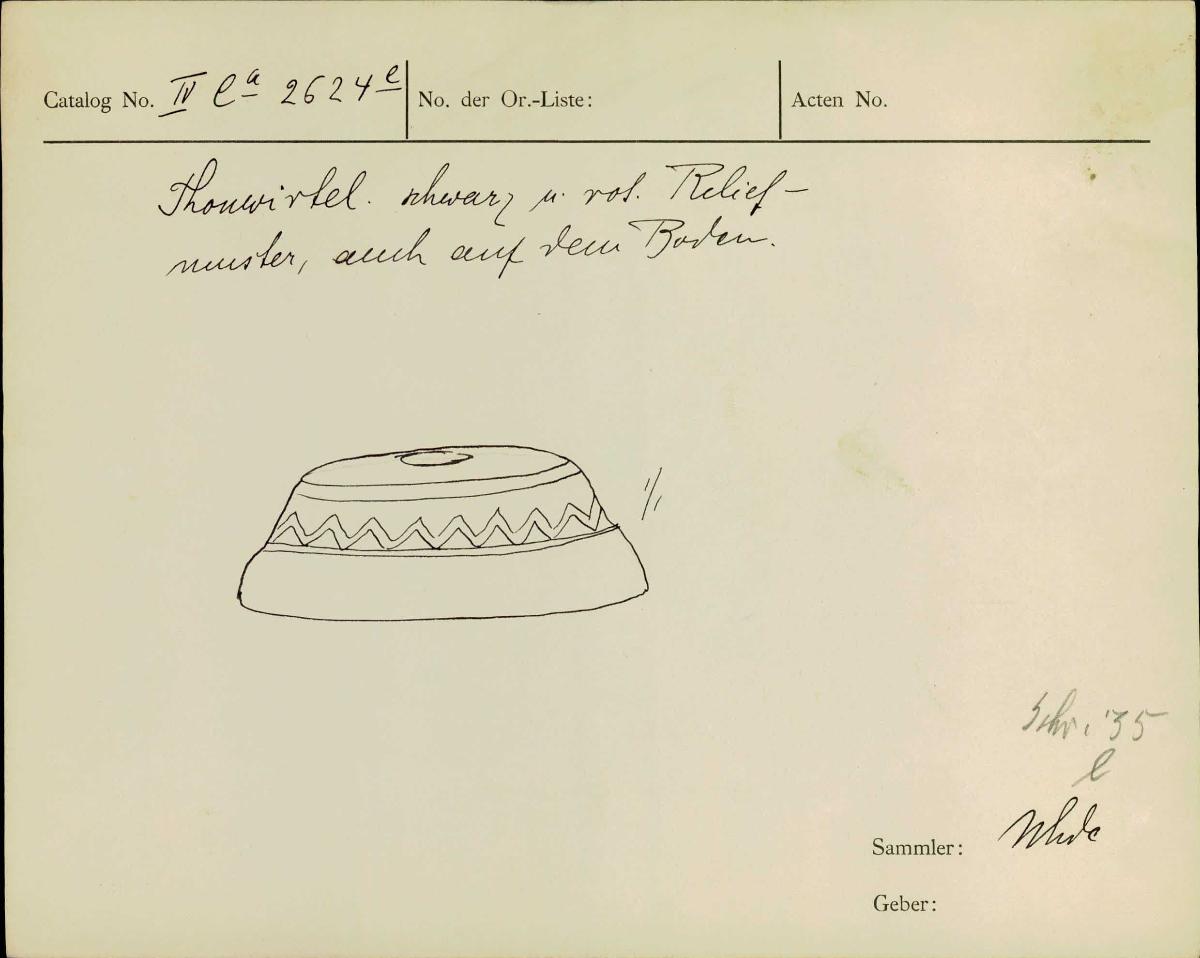 Catalog No. IV Ca 2624 e No. der Or.-Liste: Acten No.
Thonwirtel. schwarz u. rot. Relief-
muster, auch auf dem Boden.
1/1
Schr. 35
e
Sammler: Uhde
Geber: